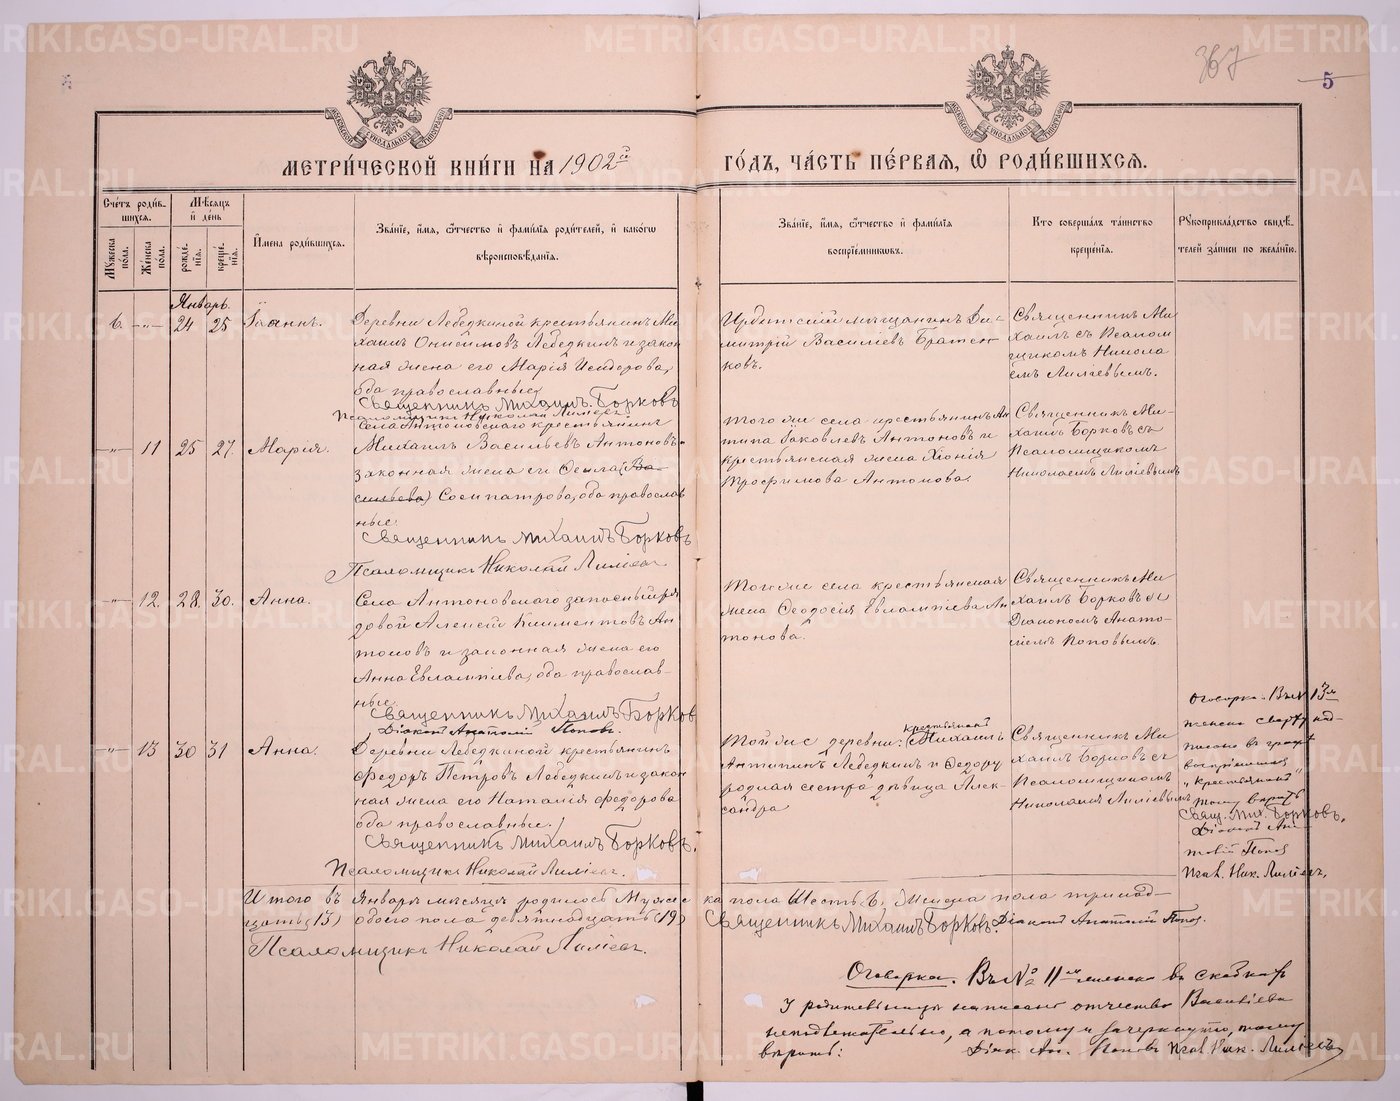 METRIKI.GASO-URAL.RU
367
5
МЕТРИ́ЧЕСКОЙ КНИ́ГИ НА 1902й
ГО́ДЪ, ЧА́СТЬ ПЕ́РВАЯ, Ѽ РОДИ́ВШИХСЯ.
Сче́тъ роди́в-
шихся.
Мѣ́сяцъ
и҆ де́нь
Мꙋ́жеска по́ла.
Же́нска по́ла.
рожде́нїѧ.
креще́нїѧ.
И҆мена̀ роди́вшихся.
Зва́нїе, и҆́мѧ, ѻ҆́тчество и҆ фами́лїѧ роди́телей, и҆ како́гѡ
вѣроисповѣ́данїѧ.
Зва́нїе, и҆́мѧ, ѻ҆́тчество и҆ фами́лїѧ
воспрїе́мникѡвъ.
Кто̀ соверша́лъ та́инство
креще́нїѧ.
Рꙋкоприкла́дство свидѣ́-
телей за́писи по жела́нїю.
Январь.
6. -„- 24 25 Іоаннъ.
Деревни Лебедкиной крестьянинъ Ми-
хаилъ Онисимовъ Лебедкинъ и закон
ная жена его Марія Исидорова,
оба православные
Священникъ Михаилъ Борковъ
Псаломщикъ Николай Лиліевъ
Ирбитскій мѣщанинъ Ди-
митрій Василіевъ Братен
ковъ.
Священникъ Ми
хаилъ съ Псалом
щикомъ Никола
емъ Лиліевымъ.
-„- 11 25 27. Марія.
Села Антоновскаго крестьянинъ
Михаилъ Васильевъ Антоновъ
законная жена его Ѳекла (Ва-
сильева) Сосипатрова, оба православ
ные.
Священникъ Михаилъ Борковъ
Псаломщикъ Николай Лиліевъ
Того же села крестьянинъ Ан
типа Іаковлевъ Антоновъ и
крестьянская жена Хіонія
Трофимова Антонова.
Священникъ Ми-
хаилъ Борковъ съ
Псаломщикомъ
Николаемъ Лиліевымъ
-„- 12. 28. 30. Анна.
Села Антоновскаго запасный ря
довой Алексій Климентовъ Ан
тоновъ и законная жена его
Анна Евлампіева, оба православ-
ные.
Священникъ Михаилъ Борков
Діаконъ Анатолій Поповъ.
Того же села крестьянская
жена Ѳеодосія Евлампіева Ан
тонова.
Священникъ Ми
хаилъ Борковъ съ
Діакономъ Анато-
ліемъ Поповымъ
-„- 13 30 31 Анна.
Деревни Лебедкиной крестьянинъ
Федоръ Петровъ Лебедкинъ и закон
ная жена его Наталія Федорова
оба православные.
Священникъ Михаилъ Борковъ.
Псаломщикъ Николай Лиліевъ.
крестьянинъ
Той же деревни: Михаилъ
Антипинъ Лебедкинъ и Федору
родная сестра дѣвица Алек-
сандра
Священникъ Ми
хаилъ Борковъ съ
Псаломщикомъ
Николаемъ Лиліевымъ
Оговорка. Въ № 13м
женска сверху над-
писано въ графѣ
"крестьянинъ"
тому вѣрить
Свящ. Мих. Борковъ.
Діаконъ Ана-
толій Поповъ
Псал. Ник. Лиліевъ,
Итого въ Январѣ мѣсяцѣ родилось Мужес
ка пола Шесть 6. Женска пола тринад-
цать (13) обоего пола девятнадцать (19)
Священникъ Михаилъ Борковъ. Діаконъ Анатолій Попов.
Псаломщикъ Николай Лиліевъ.
Оговорка. Въ № 11м женска въ скобкахъ
У родительницы написано отчество Васильева
неподлежательно, а потому и зачеркнуто, тому
вѣрить: Діак. Ан. Поповъ Псал. Ник. Лиліевъ